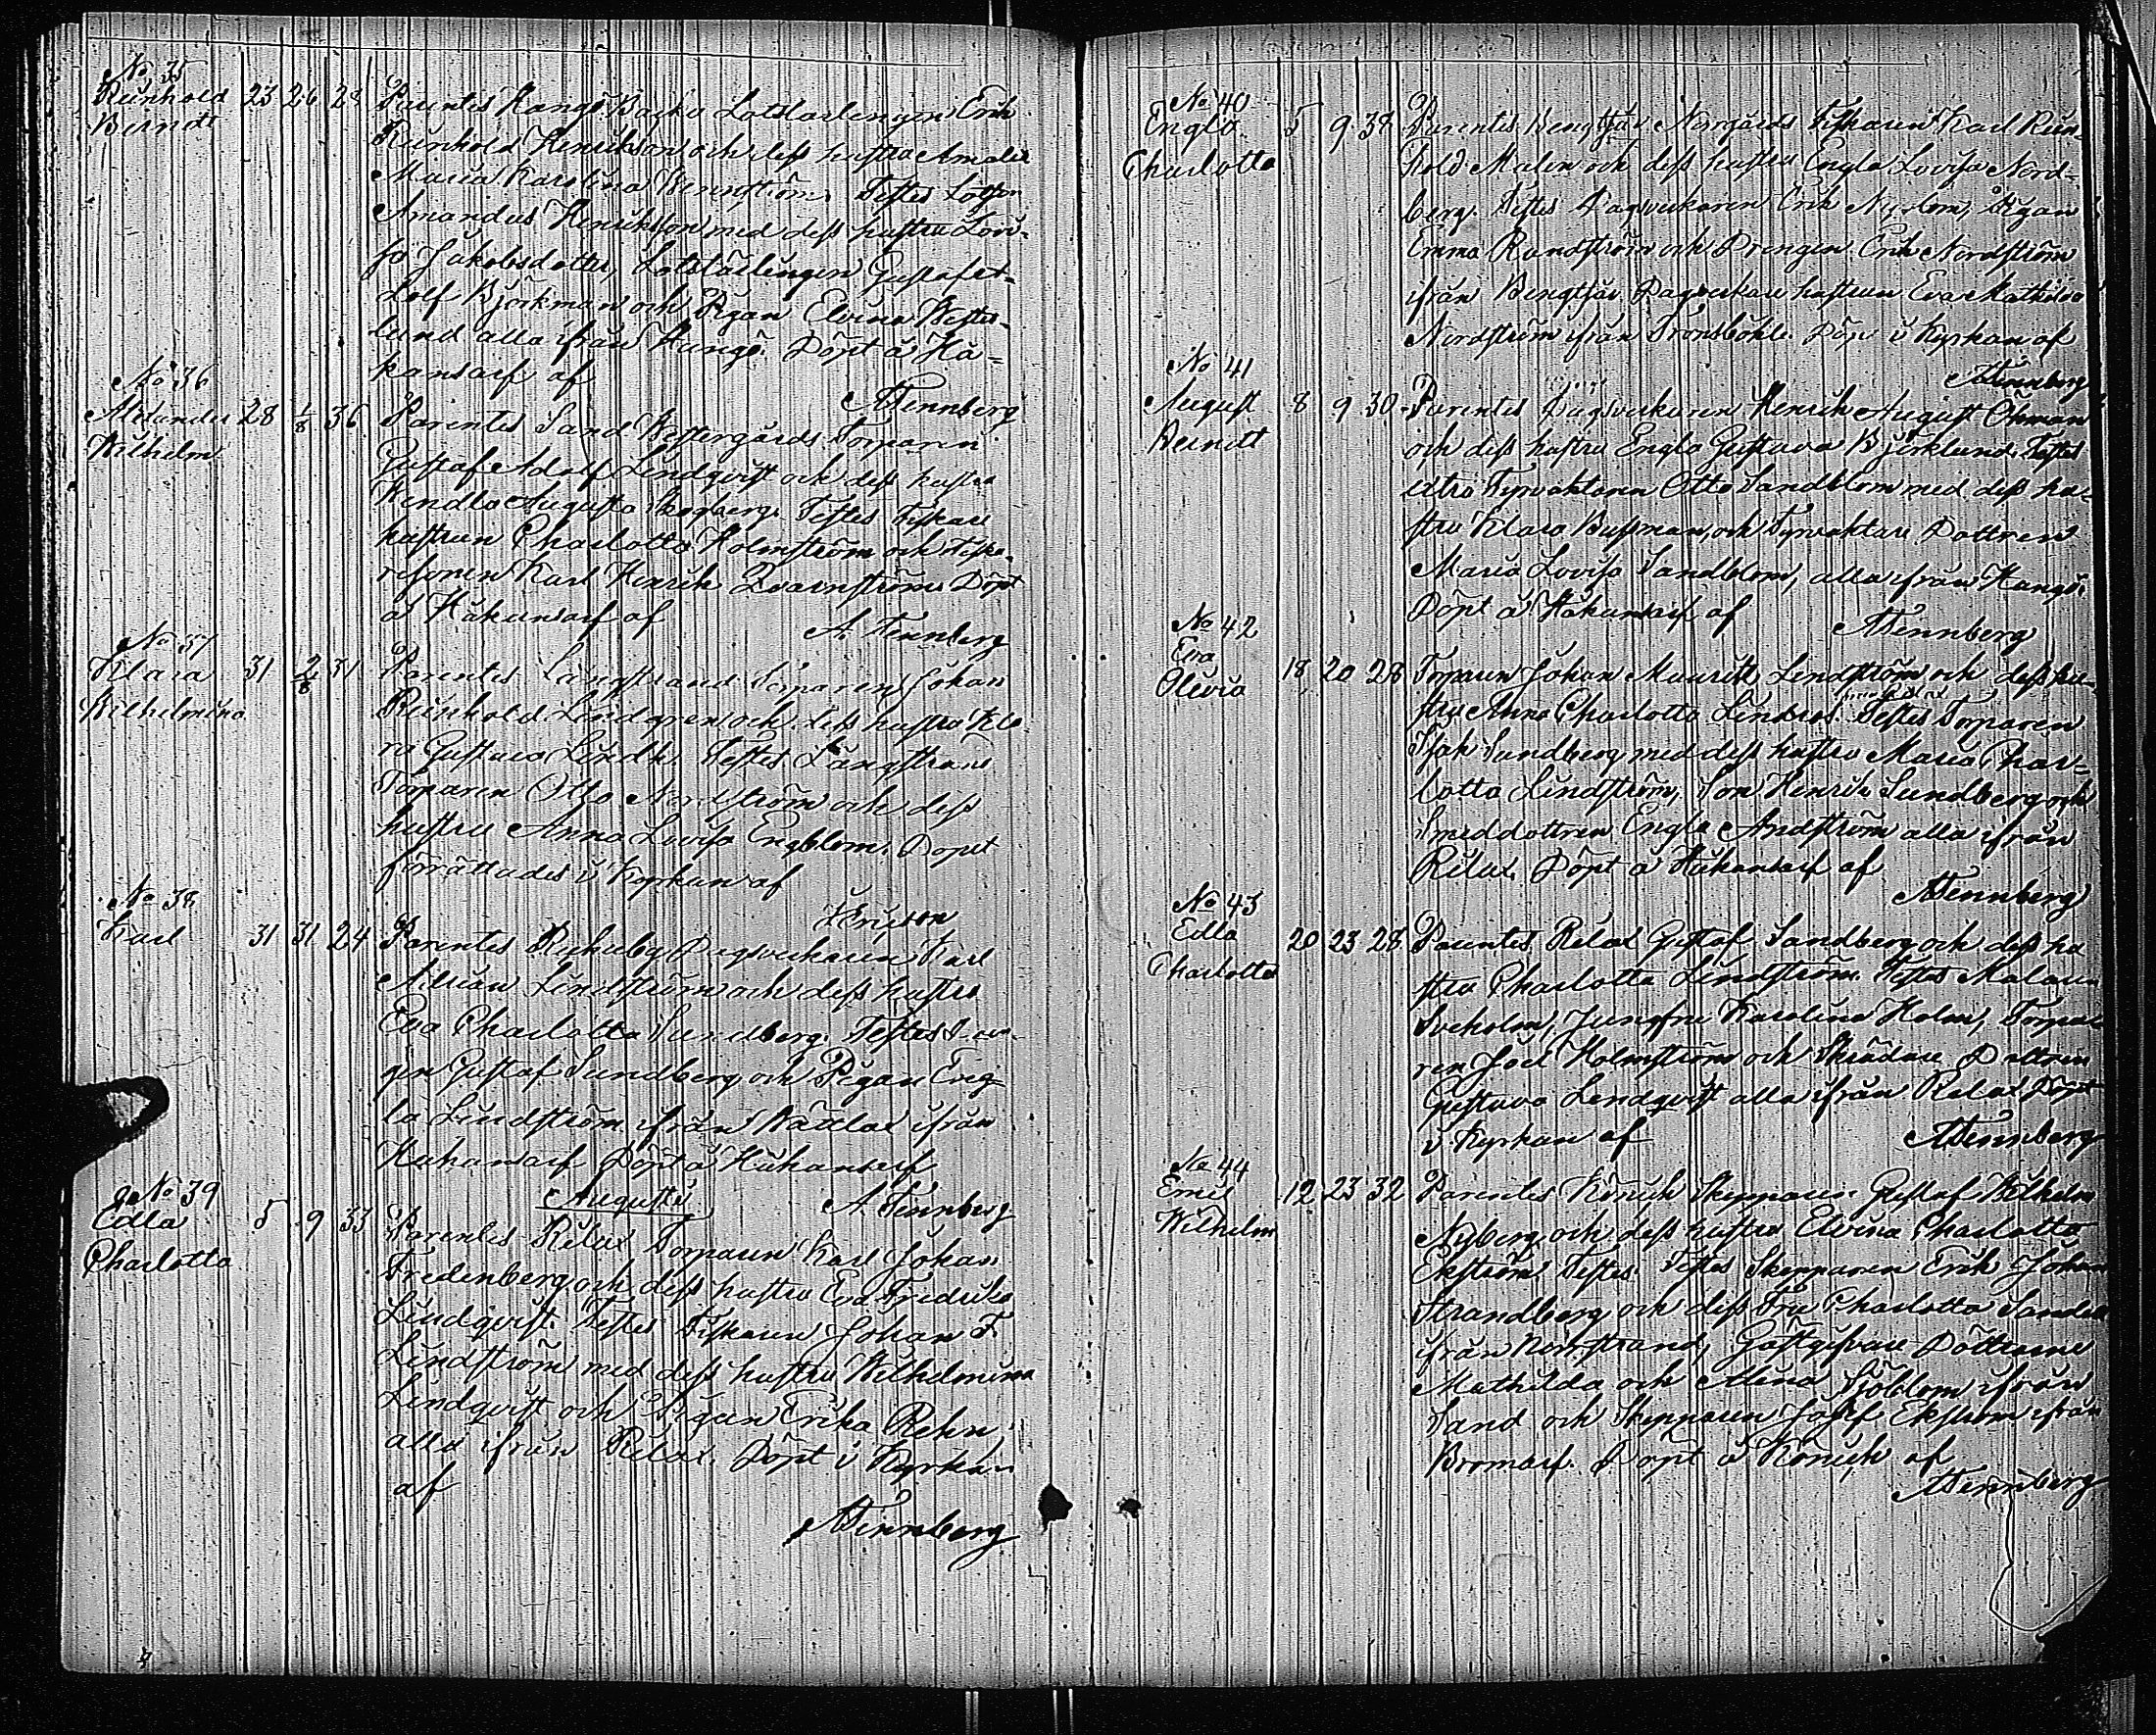 No 35
Reinhold 23 26 28 Parentes Hangö Backa Lotslärlingen Erik
Berndt
Reinhold Henrikson och dess hustru Amalia
Maria Karolina Wennström. Testes Lotsen
Amandus Henrikson med dess hustru Lovi-
sa Jakobsdotter, Lotslärlingen Gustaf Ad-
dolf Björkman och Pigan Elvina Wester-
lund alla ifrån Hangö. Döpt å Hå-
kansarf af
ATennberg
No 36
Alexander 28 1/8 36 Parentes Sand Westergårds Torparen
Wilhelm
Gustaf Adolf Lindqvist och dess hustru
Wendla Augusta Skogberg. Testes Fiskare
hustrun Charlotta Holmström och Fiska-
resonen Karl Henrik Qvarnström. Döpt
å Håkansarf af
A. Tennberg
No 37
Klara 31 2/8 31 Parentes Långstrand Torparen Johan
Wilhelmina
Reinhold Lindgren och dess hustru Kla
ra Gustava Lindh. Testes Långstrand
Torparen Otto Nordström och dess
hustru Anna Lovisa Engblom. Dopet
förrättades i Kyrkan af
Ericson
No 38
Karl 31 31 24 Parentes Dagsverkaren Karl
Adrian Lindström och dess hustru
Eva Charlotta Sundberg. Testes Drän-
gen Gustaf Sundberg och Pigan Eng-
la Lindström ifrån Nättlax ifrån
Håkansarf Döpt å Håkansarf
A. Tennberg
Augusti
No 39
Edla 5 9 33 Parentes Rilax Torparen Karl Johan
Charlotta
Fredenberg och dess hustru Eva Fredrika
Lindqvist. Testes Fiskaren Johan F.
Lindström med dess hustru Wilhelmina
Lindqvist och Pigan Erika Rehn
alla ifrån Rilax. Döpt i Kyrkan
af
ATennberg
No 40
Engla 5 9 38 Parentes Bengtsår Norgårds Fiskaren Karl Rein-
Charlotta
hold Malen och dess hustru Engla Lovisa Nord-
berg. Testes Dagsverkaren Erik Nyblom, Pigan
Emma Randström och Drengen Erik Nordström
ifrån Bengtsår, Dagsverkare hustrun Eva Mathilda
Nordström ifrån Tronsböhle. Döpt i Kyrkan af
ATennberg
No 41
August 8 9 30 Parentes Dagsverkaren Henrik August Öhman
Berndt
och dess hustru Engla Gustava Björklund. Testes
Fyrvaktaren Otto Sandblom med dess hu-
stru Klara Bussman, och Fyrvaktare Dottren
Maria Lovisa Sandblom, alla ifrån Hangö.
Döpt å Håkansarf af
ATennberg
No 42
Eva 18 20 28 Torparen Johan Mauritz Lindström och dess hu-
Olivia
stru Anna Charlotta Lindros. Testes Torparen
Isak Sundberg med dess hustru Maria Char-
lotta Lindström, Son Henrik Sundberg och
Smeddottren Engla Andström alla ifrån
Rilax. Döpt å Håkansarf af
ATennberg
No 43
Edla 20 23 28 Parentes Rilax Gustaf Sandberg och dess hu
Charlotta
stru Charlotta Lindström. Testes Malaren
Sveholm, Jungfru Karolina Holm, Torpa-
ren Joel Holmström och Skrädare Dottren
Gustava Lendqvist alla ifrån Rilax Döpt
i Kyrkan af
ATennberg
No 44
Emil 12 23 32 Parentes Skepparen Gustaf Wilhelm
Wilhelm
Nyberg och dess hustru Elvina Charlotta
Ekström Testes. Testes Skepparen Erik Johan
Strandberg och dess Fru Charlotta Sandell
ifrån Norrstrand, Gästgifvare Döttrarne
Mathilda och Alina Sjöblom ifrån
Sand och Skepparen Josef Ekström ifrån
Bromarf. Döpt å af
ATennberg